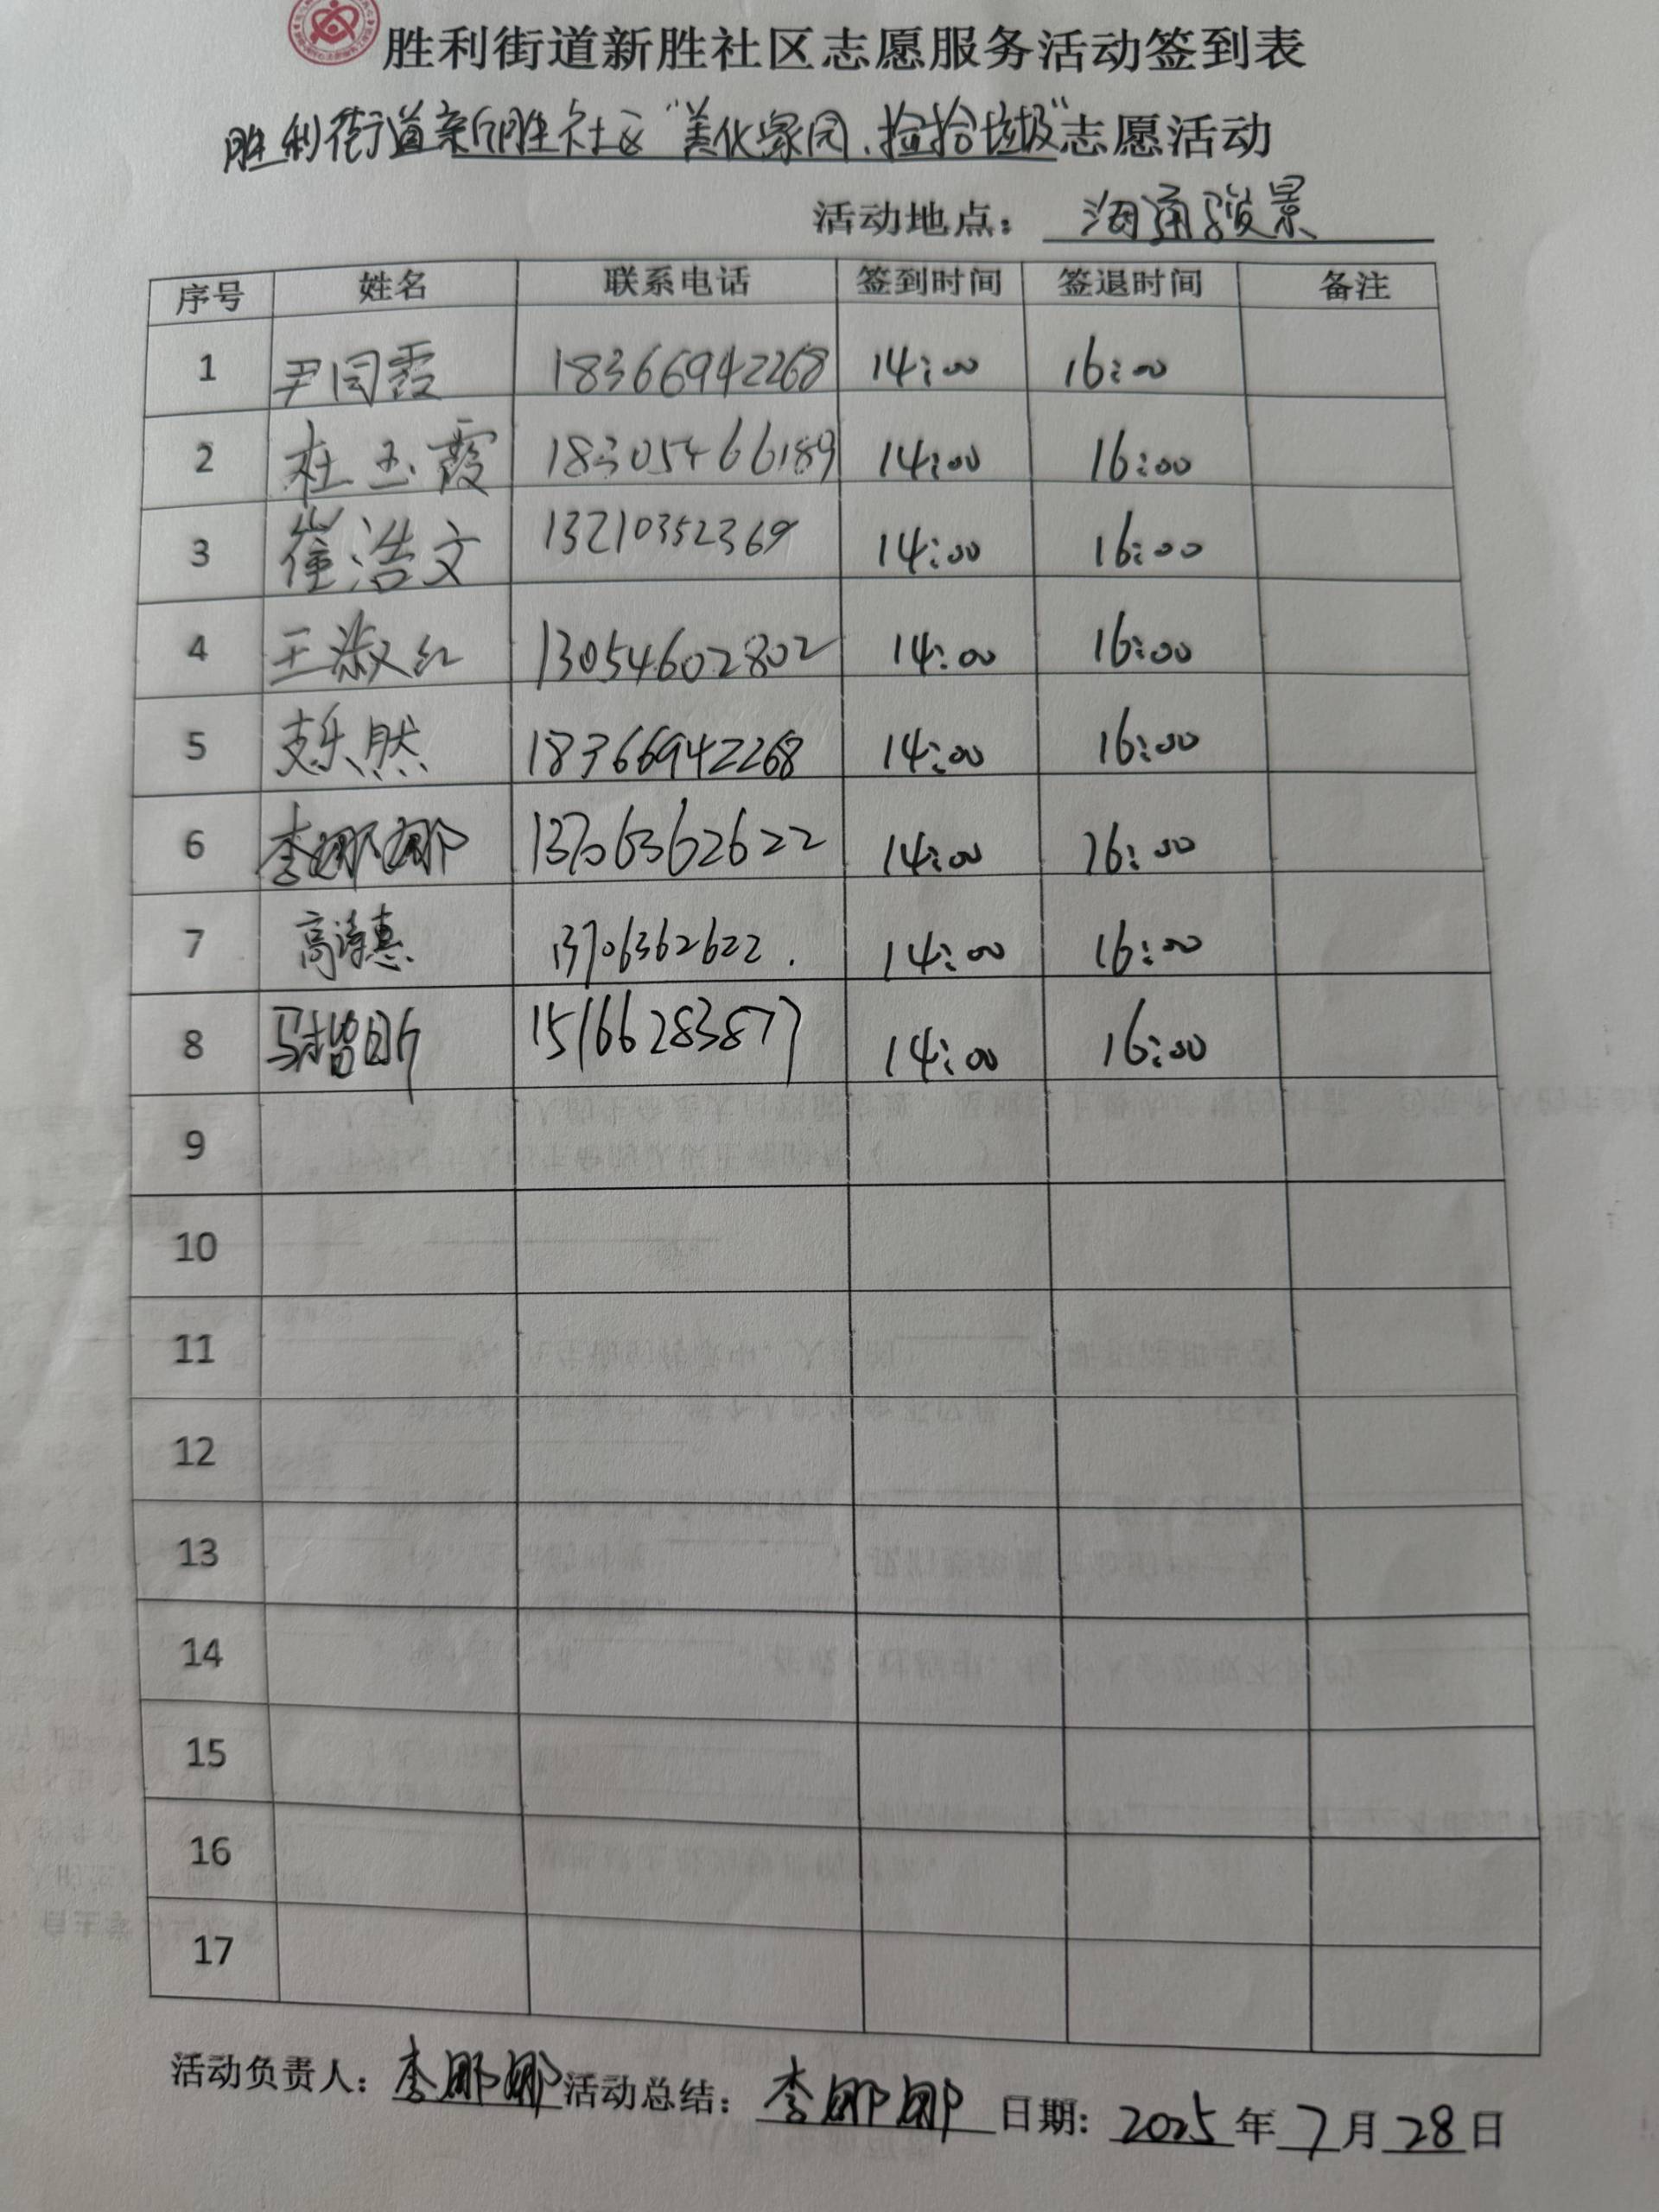 胜利街道新胜社区志愿服务活动签到表
胜利街道新胜社区“美化家园、捡拾垃圾”志愿活动
活动地点： 海通骏景
序号 姓名 联系电话 签到时间 签退时间 备注
1 尹同霞 18366942268 14:00 16:00
2 杜玉霞 18305466189 14:00 16:00
3 崔浩文 13210352369 14:00 16:00
4 王淑红 13054602802 14:00 16:00
5 支乐然 18366942268 14:00 16:00
6 李娜娜 13706362622 14:00 16:00
7 高诗惠 13706362622. 14:00 16:00
8 马楷昕 15166283877 14:00 16:00
9
10
11
12
13
14
15
16
17
活动负责人：李娜娜 活动总结：李娜娜 日期：2025年7月28日